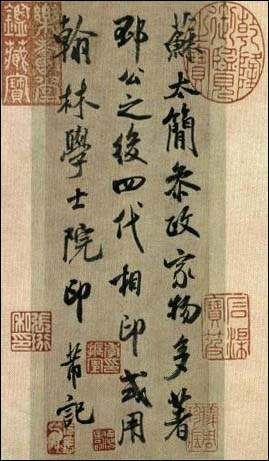 蘇太簡參政家物多著
邳公之後四代相印或用
翰林學士院印 芾記
石渠寶笈